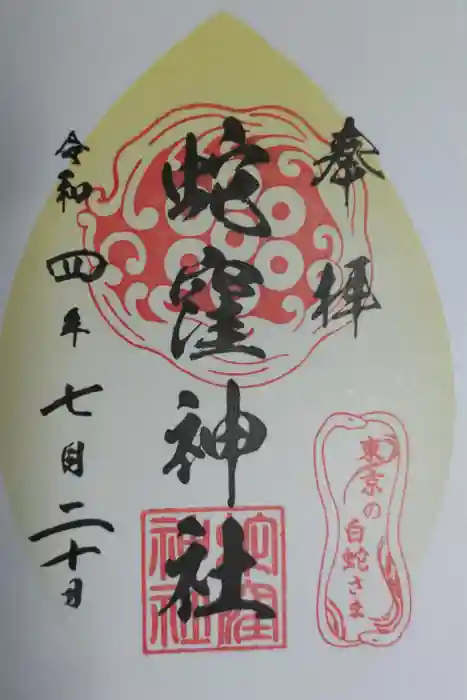 奉拝
東京の
白蛇さま
蛇窪神社
蛇窪
神社
令和四年七月二十日